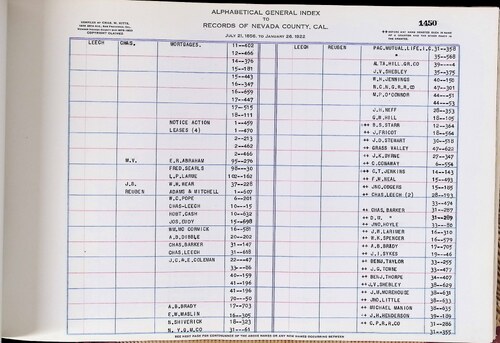 ALPHABETICAL GENERAL INDEX
TO
RECORDS OF NEVADA COUNTY, CAL.
1450
COPYRIGHT CLAIMED
JULY 21, 1856, to JANUARY 28, 1922
LEECH CHAS. MORTGAGES. 11—402
12—466
14—376
15—181
15—443
16—347
16—659
17—447
17—515
18—111
NOTICE ACTION 1—459
LEASES (4) 1—470
2—213
2—462
2—466
M.V. E.R.ABRAHAM 95—276
FRED,SEARLS 98—30
L.P.LARUE 102—162
J.B. W.W.HEAR 37—228
REUBEN ADAMS & MITCHELL 1—607
W.C.POPE 6—201
CHAS-LEECH 10—15
HOBT,CASH 10—632
JOB,EDDY 15—698
WM,MC CORMICK 16—581
A.B.DIBBLE 20—202
CHAS,BARKER 31—147
CHAS,LEECH 31—618
J.C.& E.COLEMAN 22—47
33—86
40—159
41—196
41—196
70—50
A.B.BRADY 17—703
E.W.MASLIN 16—305
B.SHIVERICK 18—323
N.Y.G.M.CO 31—61
LEECH REUBEN PAC,MUTUAL,LIFE,I.C. 31—358
" 35—568
ALTA,HILL,GR.CO 39—4
J.V.SNEDLEY 35—375
W.H.JENNINGS 40—158
N.C.N.G.R.R.CO 47—301
M.P.O'CONNOR 44—51
44—53
J.H.NEFF 28—353
G.B.HILL 18—105
++ B.S.STARR 12—364
++ J.FRICOT 18—564
++ J.D.STEWART 30—518
++ GRASS VALLEY 47—622
++ J.K.BYRNE 27—347
++ C.CONAWAY 6—554
++ G.T.JENKINS 14—143
++ F.W.NEAL 15—493
++ JNO,ROGERS 15—185
++ CHAS,LEECH (2) 28—193
33—474
++ CHAS,BARKER 31—287
++ D.U. " 31—289
++ JNO,HOYLE 33—88
++ J.W.LARIMER 16—310
++ W.K.SPENCER 16—579
++ A.B.BRADY 17—705
++ J.I.SYKES 19—46
++ BENJ,TAYLOR 33—255
++ J.G.TORME 33—477
++ BENJ,THORPE 34—407
++ J.V.SNEDLEY 38—629
++ J.W.MOREHOUSE 38—631
++ JNO,LITTLE 38—633
++ MICHAEL MANION 38—635
++ J.H.HENDERSON 39—109
++ C.P.R.R.CO 31—286
31—355